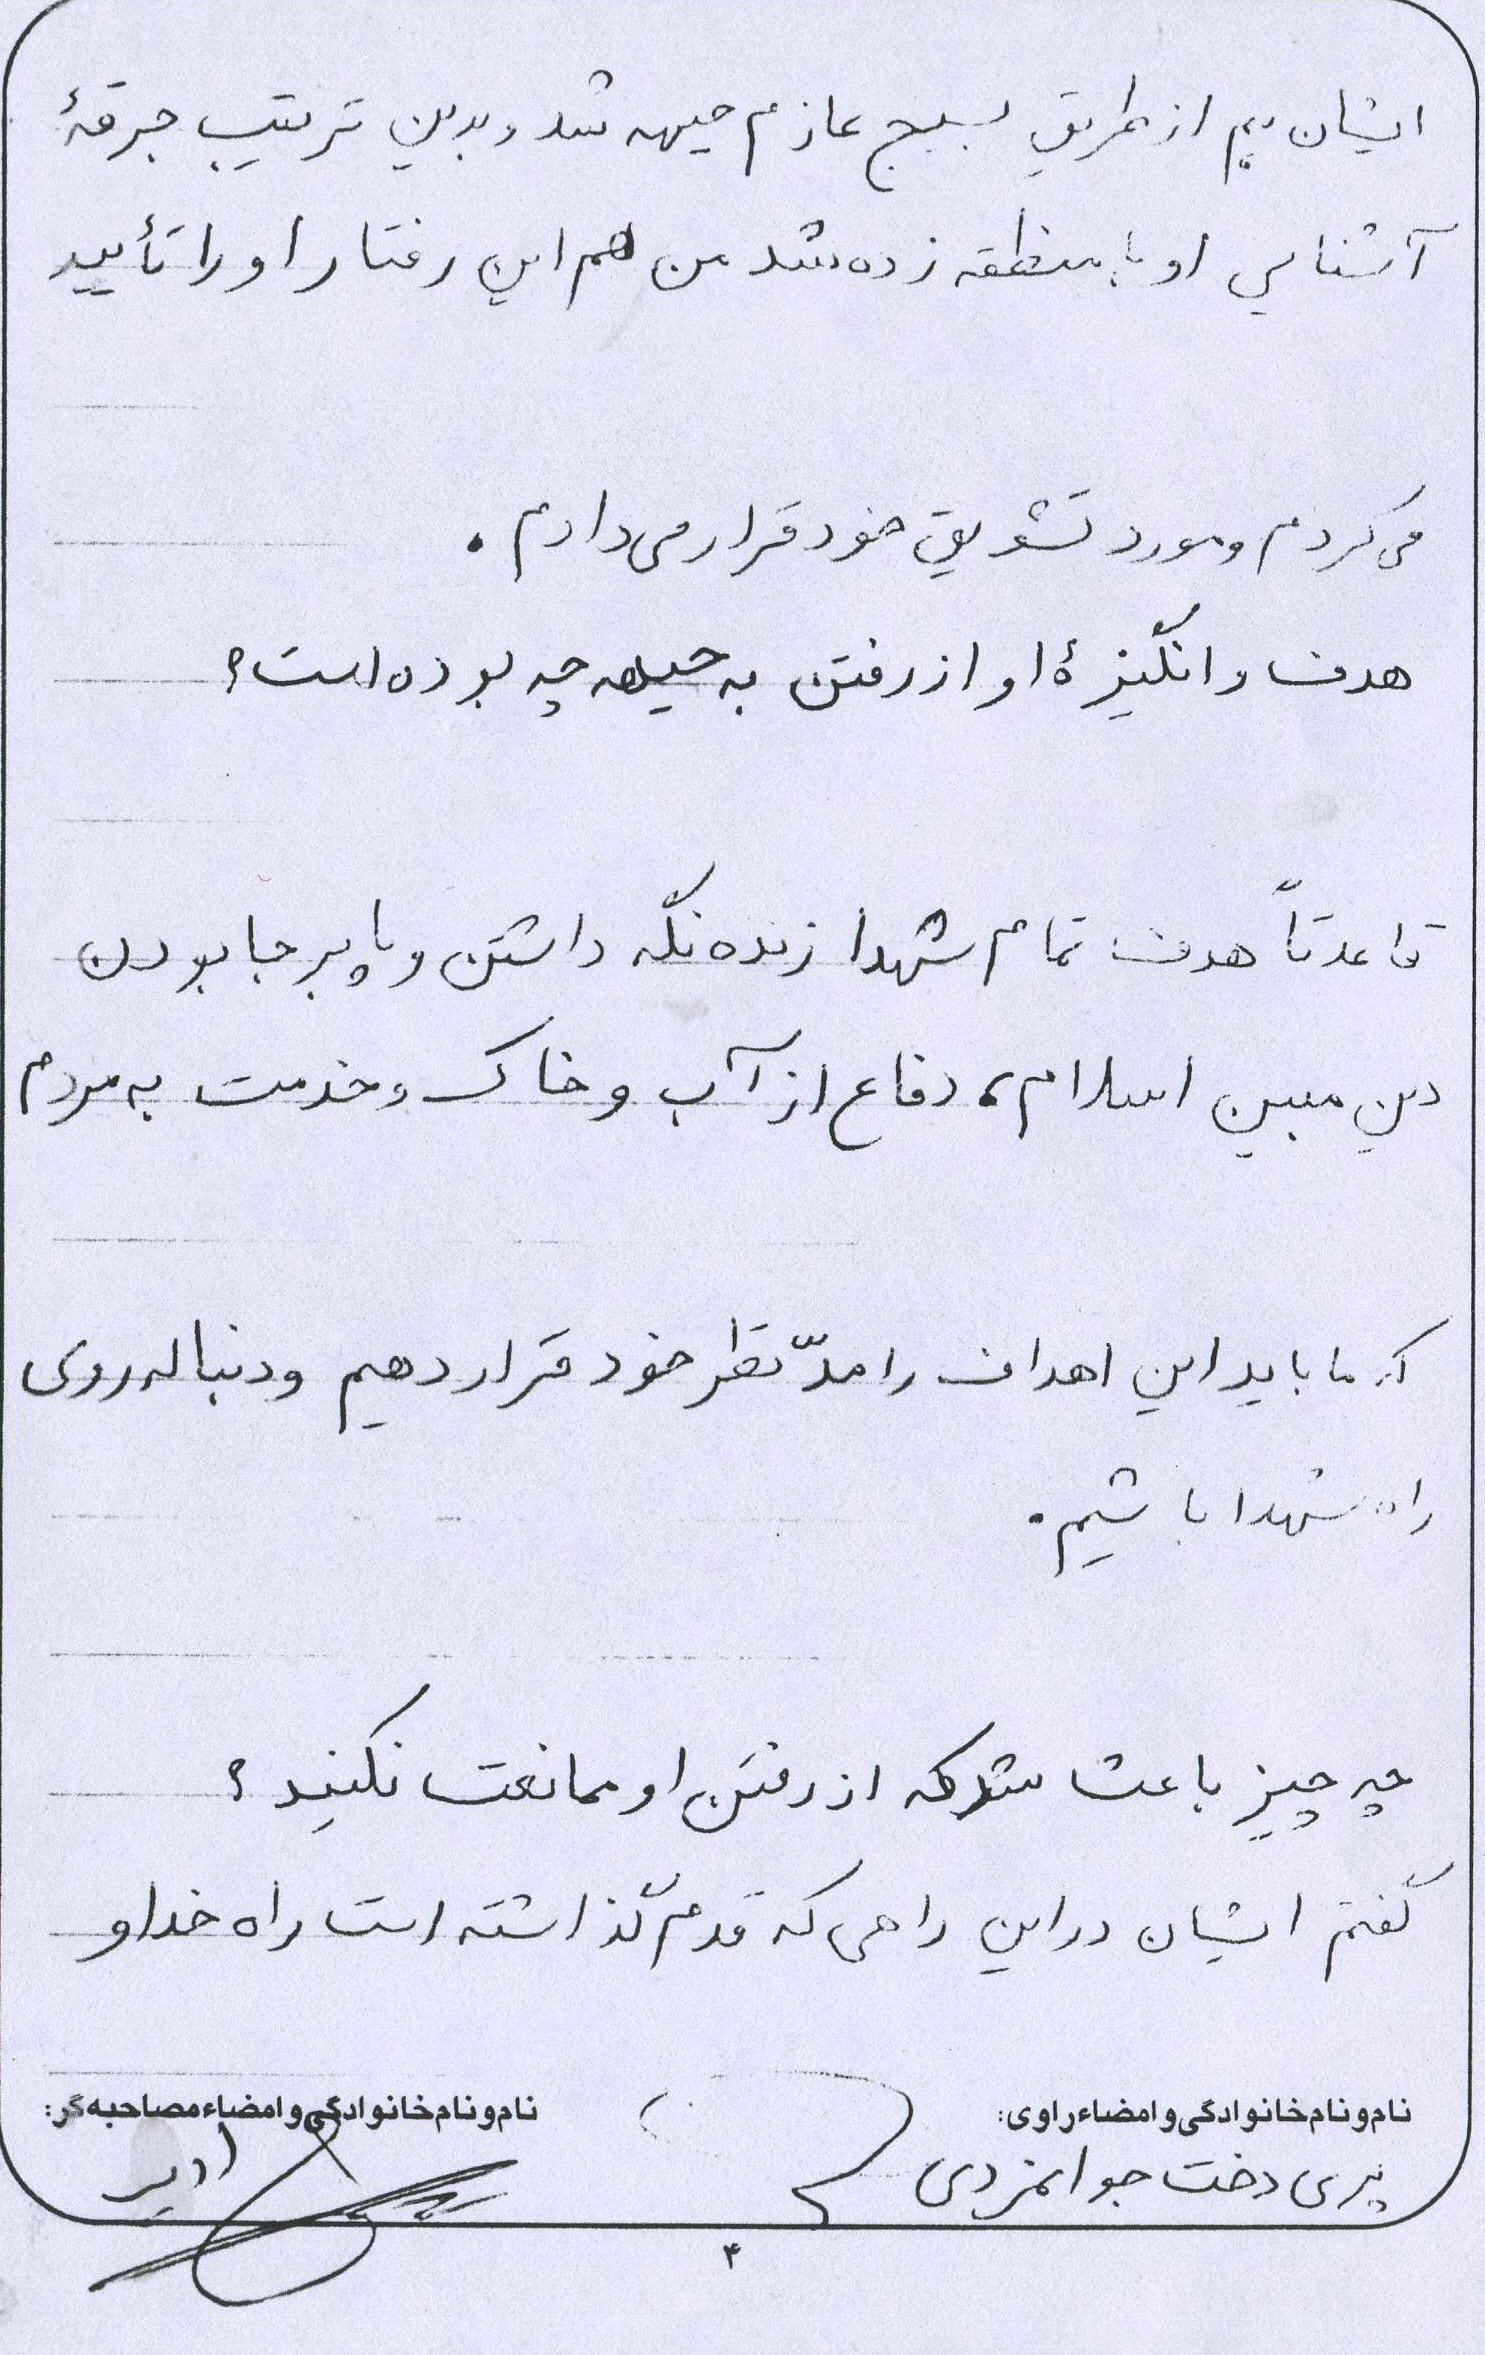 ایشان هم از طریق بسیج عازم جبهه شد و بدین ترتیب جرقهٔ
آشنایی او با منطقه زده شد من هم این رفتار او را تأیید
می‌کردم و مورد تشویق خود قرار می‌دادم.
هدف و انگیزهٔ او از رفتن به جبهه چه بوده است؟
قاعدتاً هدف تمام شهدا زنده نگه داشتن و پا برجا بودن
دین مبین اسلام، دفاع از آب و خاک و خدمت به مردم
که ما باید این اهداف را مدّ نظر خود قرار دهیم و دنباله روی
راه شهدا باشیم.
چه چیز باعث شد که از رفتن او ممانعت نکنید؟
گفتم ایشان در این راهی که قدم گذاشته است راه خدا و
نام و نام خانوادگی و امضاء راوی:
نام و نام خانوادگی و امضاء مصاحبه‌گر:
پری دخت جوانمردی
۴